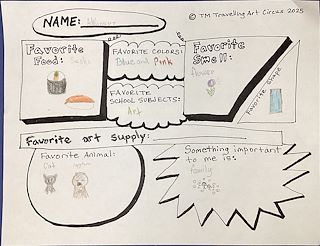 © TM Travelling Art Circus 2025
NAME:
Favorite
Food: Sushi
FAVORITE COLORS:
Blue and Pink
Favorite
Smell:
flower
FAVORITE
SCHOOL SUBJECTS:
Art
Favorite shape
Favorite art supply:
Favorite Animal:
Cat
Something important
to me is:
family